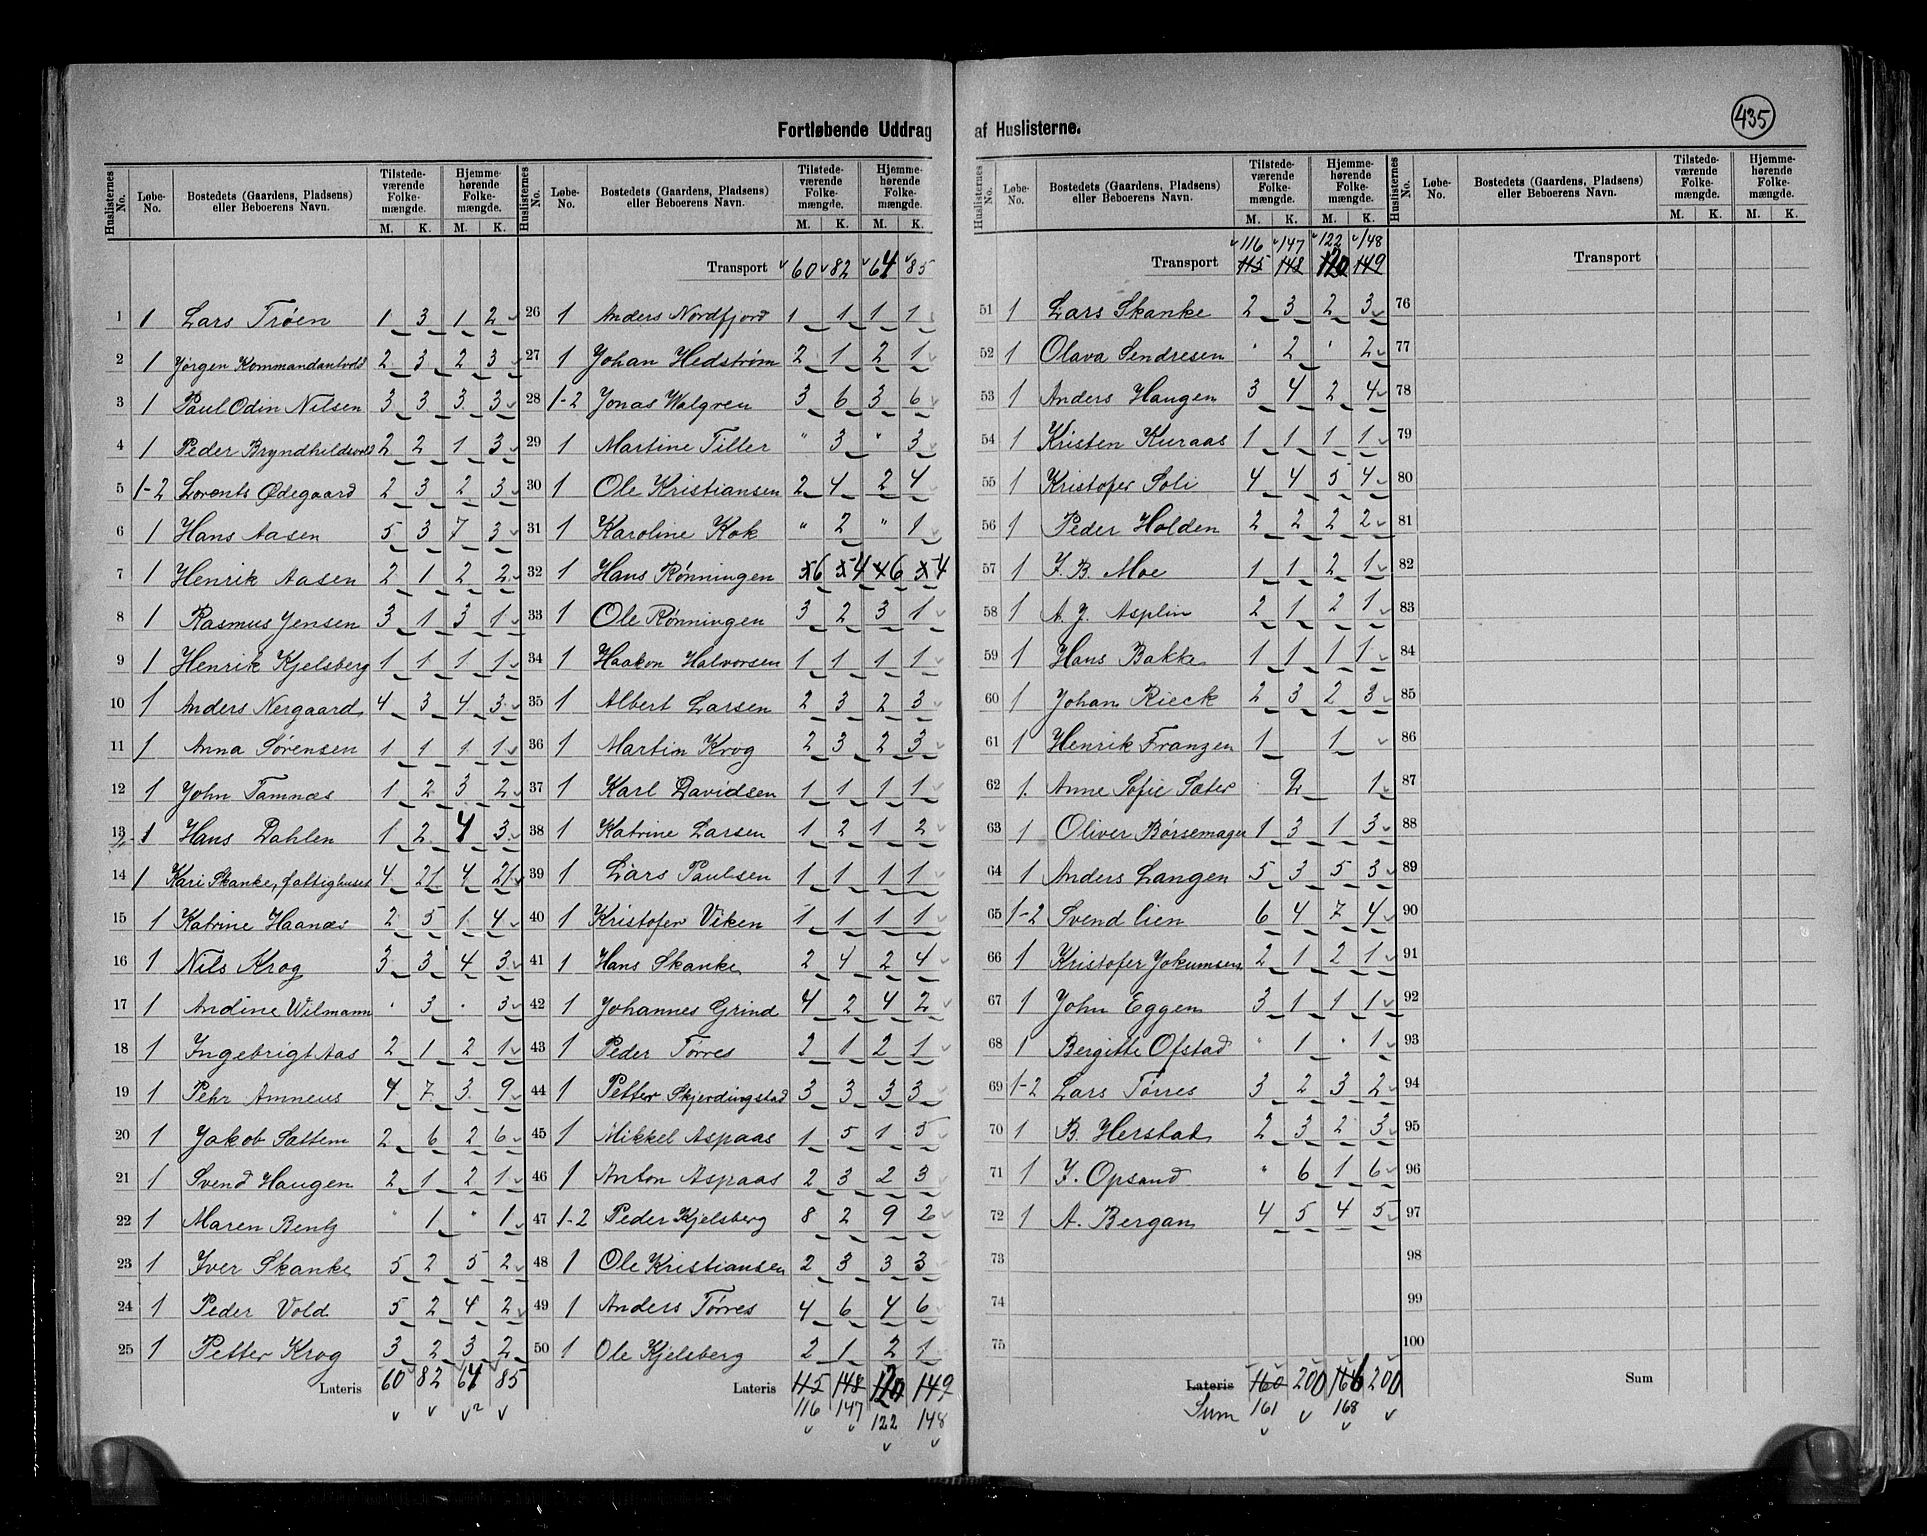 435
Fortløbende Uddrag af Huslisterne.
Huslisternes No. | Løbe-No. | Bostedets (Gaardens, Pladsens) eller Beboerens Navn. | Tilstedeværende Folkemængde. M. K. | Hjemmehørende Folkemængde. M. K.
1 1 Lars Trøen 1 3 1 2
2 1 Jørgen Kommandantvold 2 3 2 3
3 1 Paul Odin Nilsen 3 3 3 3
4 1 Peder Bryndhildsvold 2 2 1 3
5 1-2 Lorents Ødegaard 2 3 2 3
6 1 Hans Aasen 5 3 7 3
7 1 Henrik Aasen 2 1 2 2
8 1 Rasmus Jensen 3 1 3 1
9 1 Henrik Kjelsberg 1 1 1 1
10 1 Anders Nergaard 4 3 4 3
11 1 Anna Sørensen 1 1 1 1
12 1 John Tamnæs 1 2 3 2
13 1 Hans Dahlen 1 2 4 3
14 1 Kari Skanke, fattighuset 4 21 4 21
15 1 Katrine Haanæs 2 5 1 4
16 1 Nils Krog 3 3 4 3
17 1 Andine Wilmann · 3 · 3
18 1 Ingebrigt Aas 2 1 2 1
19 1 Pehr Amneus 4 7 3 9
20 1 Jakob Sattem 2 6 2 6
21 1 Svend Haugen 2 1 2 1
22 1 Maren Bentz " 1 " 1
23 1 Iver Skanke 5 2 5 2
24 1 Peder Vold 5 2 4 2
25 1 Petter Krog 3 2 3 2
Lateris 60 82 64 85
Huslisternes No. | Løbe-No. | Bostedets (Gaardens, Pladsens) eller Beboerens Navn. | Tilstedeværende Folkemængde. M. K. | Hjemmehørende Folkemængde. M. K.
Transport 60 82 64 85
26 1 Anders Nordfjord 1 1 1 1
27 1 Johan Hedstrøm 2 1 2 1
28 1-2 Jonas Walgren 3 6 3 6
29 1 Martine Tiller " 3 " 3
30 1 Ole Kristiansen 2 4 2 4
31 1 Karoline Kok " 2 " 1
32 1 Hans Rønningen 6 4 6 4
33 1 Ole Rønningen 3 2 3 1
34 1 Haakon Halvorsen 1 1 1 1
35 1 Albert Larsen 2 3 2 3
36 1 Martin Krog 2 3 2 3
37 1 Karl Davidsen 1 1 1 1
38 1 Katrine Larsen 1 2 1 2
39 1 Lars Paulsen 1 1 1 1
40 1 Kristofer Viken 1 1 1 1
41 1 Hans Skanke 2 4 2 4
42 1 Johannes Grind 4 2 4 2
43 1 Peder Tørres 2 1 2 1
44 1 Petter Skjerdingstad 3 3 3 3
45 1 Mikkel Aspaas 1 5 1 5
46 1 Anton Aspaas 2 3 2 3
47 1-2 Peder Kjelsberg 8 2 9 2
48 1 Ole Kristiansen 2 3 3 3
49 1 Anders Tørres 4 6 4 6
50 1 Ole Kjelsberg 2 1 2 1
Lateris 115 148 120 149
116 147 122 148
Huslisternes No. | Løbe-No. | Bostedets (Gaardens, Pladsens) eller Beboerens Navn. | Tilstedeværende Folkemængde. M. K. | Hjemmehørende Folkemængde. M. K.
116 147 122 148
Transport 115 148 120 149
51 1 Lars Skanke 2 3 2 3
52 1 Olava Sendresen · 2 · 2
53 1 Anders Haugen 3 4 2 4
54 1 Kristen Kuraas 1 1 1 1
55 1 Kristofer Soli 4 4 5 4
56 1 Peder Holden 2 2 2 2
57 1 J. B. Moe 1 1 2 1
58 1 A. J. Asplin 2 1 2 1
59 1 Hans Bakke 1 1 1 1
60 1 Johan Rieck 2 3 2 3
61 1 Henrik Franzen 1 1
62 1. Anne Sofie Sæter 2 1
63 1 Oliver Børsemager 1 3 1 3
64 1 Anders Langen 5 3 5 3
65 1-2 Svend Lien 6 4 7 4
66 1 Kristofer Jokumsen 2 1 2 1
67 1 John Eggen 3 1 1 1
68 1 Bergitte Ofstad " 1 · 1
69 1-2 Lars Tørres 3 2 3 2
70 1 B. Herstad 2 3 2 3
71 1 J. Opsand " 6 1 6
72 1 A. Bergan 4 5 4 5
73
74
75
Lateris 160 200 166 200
Sum 161 168
Huslisternes No. | Løbe-No. | Bostedets (Gaardens, Pladsens) eller Beboerens Navn. | Tilstedeværende Folkemængde. M. K. | Hjemmehørende Folkemængde. M. K.
Transport
76
77
78
79
80
81
82
83
84
85
86
87
88
89
90
91
92
93
94
95
96
97
98
99
100
Sum